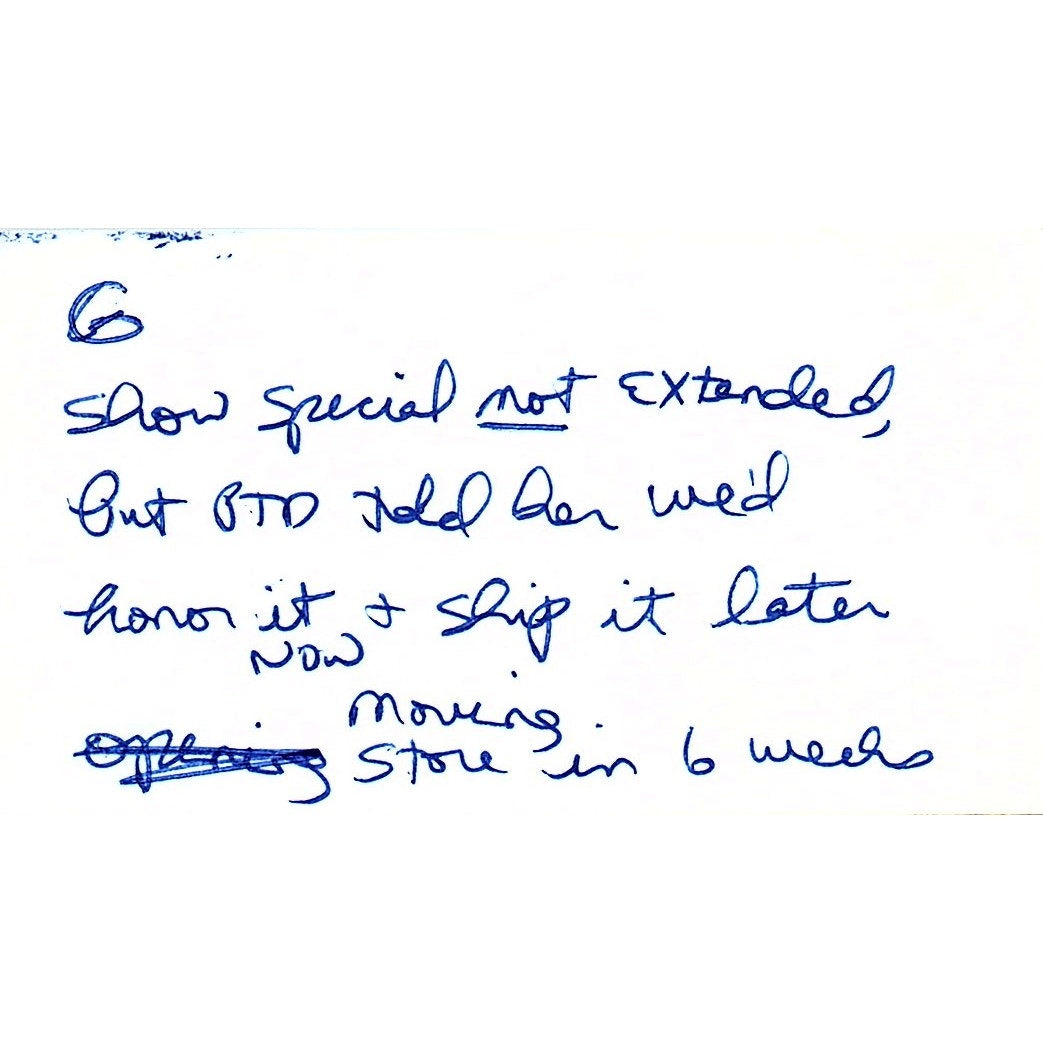 G
Show special not extended,
but PTD told her we'd
honor it + ship it later
NOW
moving
opening store in 6 weeks